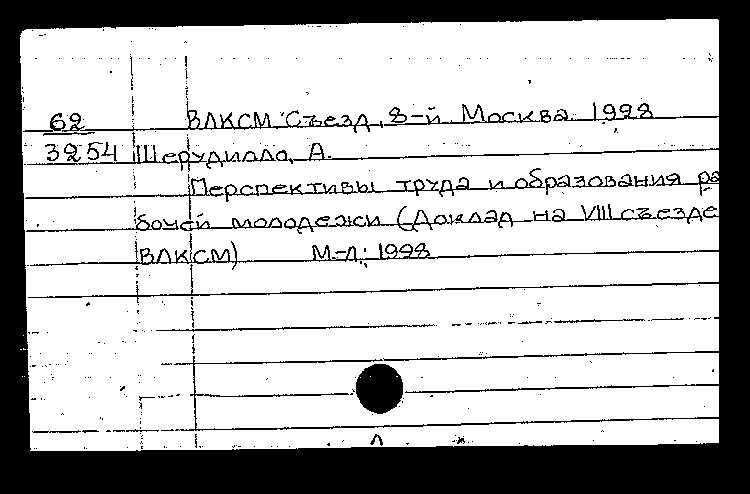 62 ВЛКСМ. Съезд, 8-й. Москва. 1928
3254 Шерудиало, А.
Перспективы труда и образования ра
бочей молодежи (Доклад на VIII съезде
ВЛКСМ) М-Л; 1928